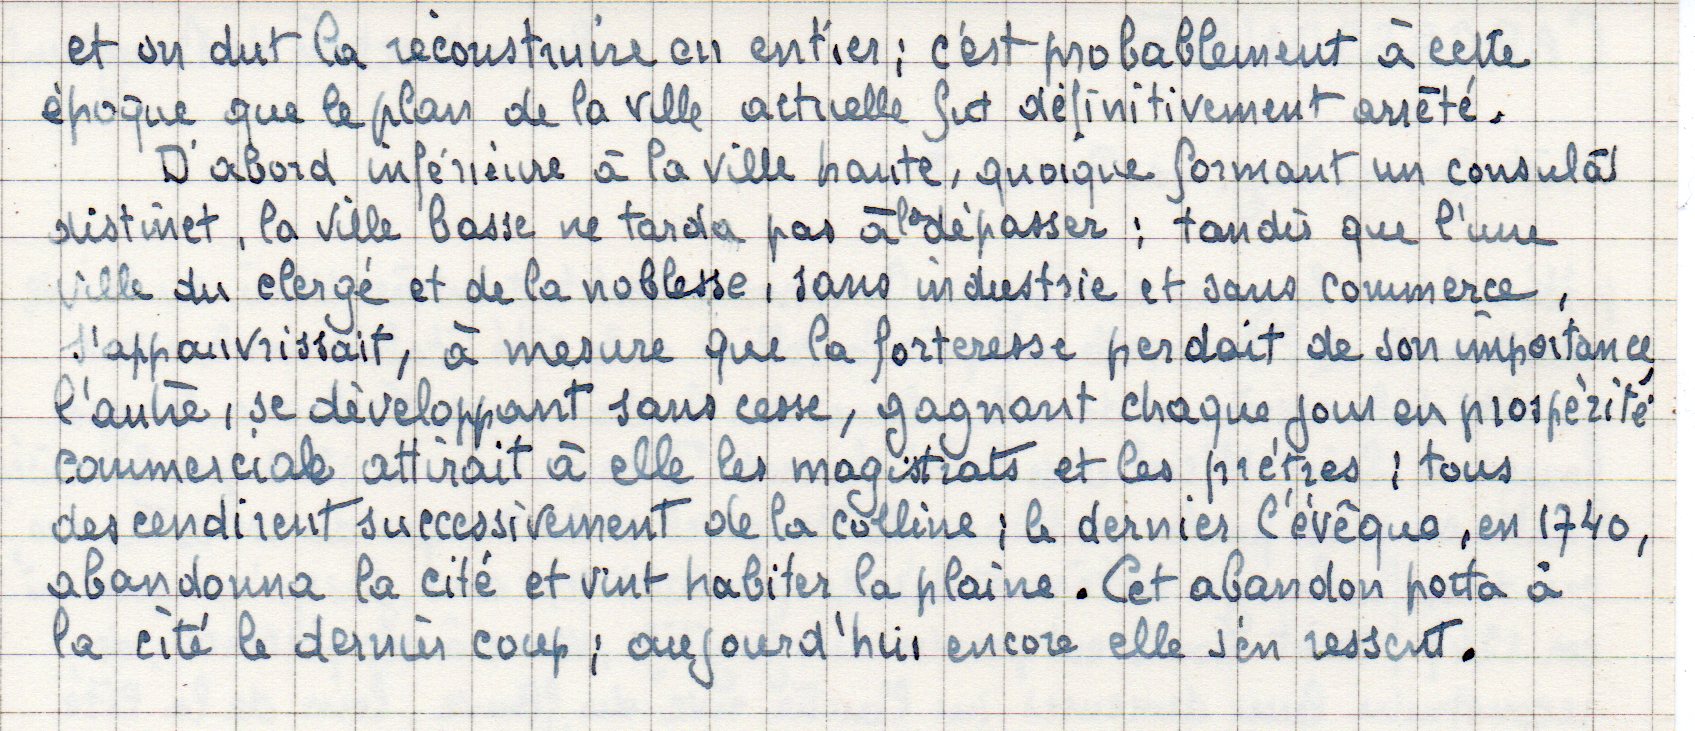 et on dut la reconstruire en entier ; c'est probablement à cette
époque que le plan de la ville actuelle fut définitivement arrêté.
D'abord inférieure à la ville haute, quoique formant un consulat
distinct, la ville basse ne tarda pas à la dépasser ; tandis que l'une
ville du clergé et de la noblesse, sans industrie et sans commerce,
s'appauvrissait, à mesure que la forteresse perdait de son importance,
l'autre, se développant sans cesse, gagnant chaque jour en prospérité
commerciale attirait à elle les magistrats et les prêtres ; tous
descendirent successivement de la colline ; le dernier l'évêque, en 1740,
abandonna la cité et vint habiter la plaine. Cet abandon porta à
la cité le dernier coup ; aujourd'hui encore elle s'en ressent.